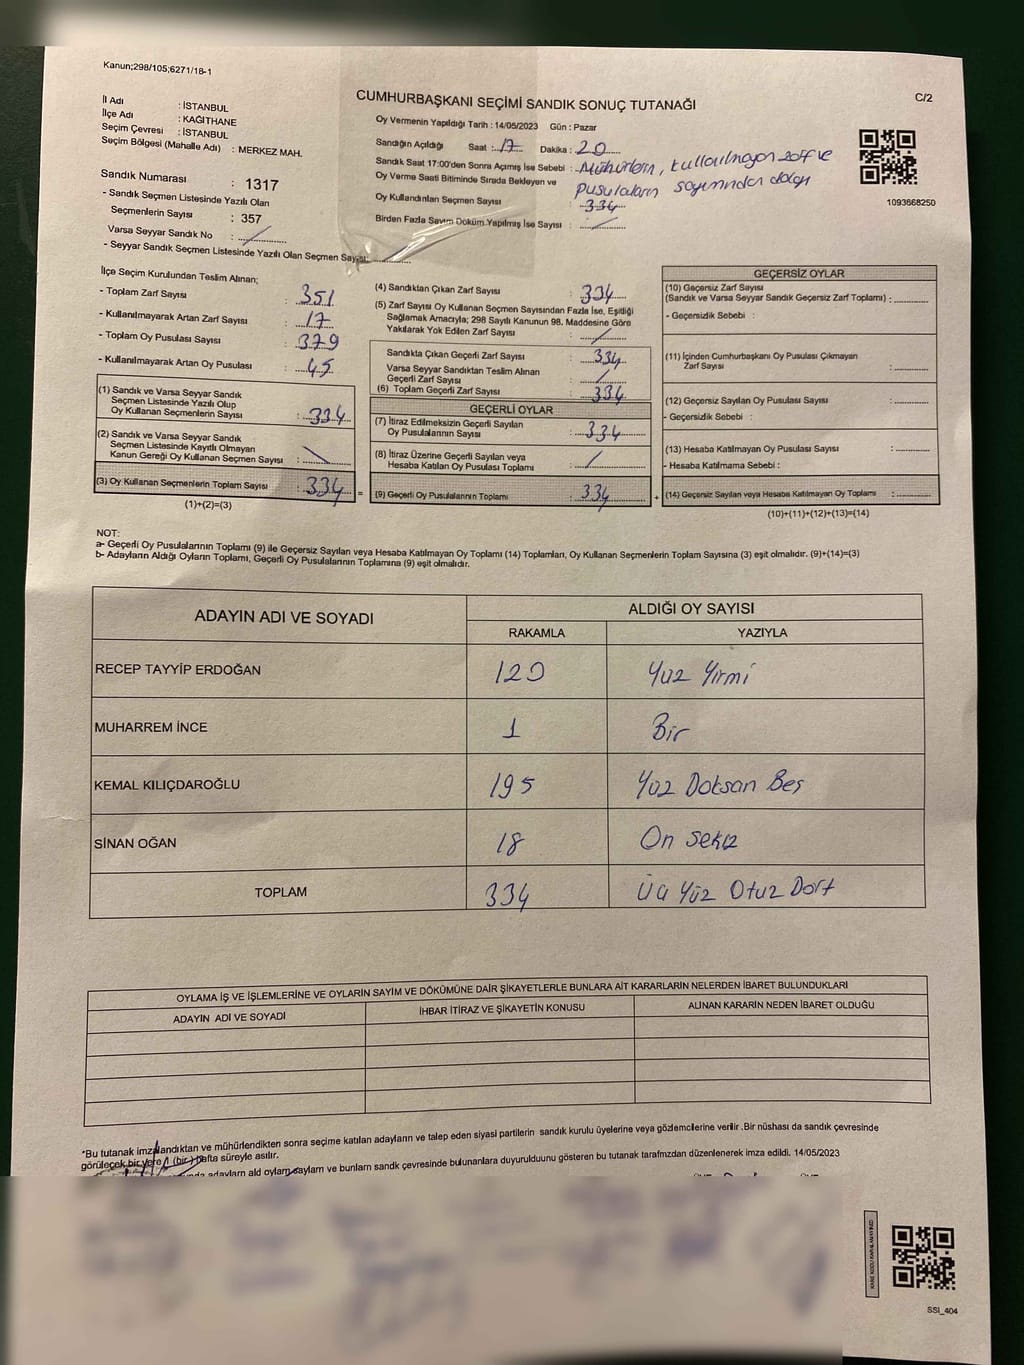 Kanun;298/105;6271/18-1
C/2
CUMHURBAŞKANI SEÇİMİ SANDIK SONUÇ TUTANAĞI
İl Adı : İSTANBUL
İlçe Adı : KAĞITHANE
Seçim Çevresi : İSTANBUL
Seçim Bölgesi (Mahalle Adı) : MERKEZ MAH.
Sandık Numarası : 1317
- Sandık Seçmen Listesinde Yazılı Olan
Seçmenlerin Sayısı : 357
Varsa Seyyar Sandık No :
- Seyyar Sandık Seçmen Listesinde Yazılı Olan Seçmen Sayısı:
Oy Vermenin Yapıldığı Tarih : 14/05/2023 Gün : Pazar
Sandığın Açıldığı Saat : 17 Dakika : 20
Sandık Saat 17:00'den Sonra Açımış İse Sebebi : Mühürlerin, kullanılmayan zarf ve
Oy Verme Saati Bitiminde Sırada Bekleyen ve pusulaların sayımından dolayı
Oy Kullandırılan Seçmen Sayısı : 334
Birden Fazla Sayım Döküm Yapılmış İse Sayısı :
1093668250
İlçe Seçim Kurulundan Teslim Alınan;
- Toplam Zarf Sayısı : 351
- Kullanılmayarak Artan Zarf Sayısı : 17
- Toplam Oy Pusulası Sayısı : 379
- Kullanılmayarak Artan Oy Pusulası : 45
(1) Sandık ve Varsa Seyyar Sandık
Seçmen Listesinde Yazılı Olup
Oy Kullanan Seçmenlerin Sayısı : 334
(2) Sandık ve Varsa Seyyar Sandık
Seçmen Listesinde Kayıtlı Olmayan
Kanun Gereği Oy Kullanan Seçmen Sayısı :
(3) Oy Kullanan Seçmenlerin Toplam Sayısı : 334 =
(1)+(2)=(3)
(4) Sandıktan Çıkan Zarf Sayısı : 334
(5) Zarf Sayısı Oy Kullanan Seçmen Sayısından Fazla İse, Eşitliği
Sağlamak Amacıyla; 298 Sayılı Kanunun 98. Maddesine Göre
Yakılarak Yok Edilen Zarf Sayısı :
Sandıkta Çıkan Geçerli Zarf Sayısı : 334
Varsa Seyyar Sandıktan Teslim Alınan
Geçerli Zarf Sayısı :
(6) Toplam Geçerli Zarf Sayısı : 334
GEÇERLİ OYLAR
(7) İtiraz Edilmeksizin Geçerli Sayılan
Oy Pusulalarının Sayısı : 334
(8) İtiraz Üzerine Geçerli Sayılan veya
Hesaba Katılan Oy Pusulası Toplamı :
(9) Geçerli Oy Pusulalarının Toplamı : 334 +
GEÇERSİZ OYLAR
(10) Geçersiz Zarf Sayısı
(Sandık ve Varsa Seyyar Sandık Geçersiz Zarf Toplamı) :
- Geçersizlik Sebebi :
(11) İçinden Cumhurbaşkanı Oy Pusulası Çıkmayan
Zarf Sayısı :
(12) Geçersiz Sayılan Oy Pusulası Sayısı :
- Geçersizlik Sebebi :
(13) Hesaba Katılmayan Oy Pusulası Sayısı :
- Hesaba Katılmama Sebebi :
(14) Geçersiz Sayılan veya Hesaba Katılmayan Oy Toplamı :
(10)+(11)+(12)+(13)=(14)
NOT:
a- Geçerli Oy Pusulalarının Toplamı (9) ile Geçersiz Sayılan veya Hesaba Katılmayan Oy Toplamı (14) Toplamları, Oy Kullanan Seçmenlerin Toplam Sayısına (3) eşit olmalıdır. (9)+(14)=(3)
b- Adayların Aldığı Oyların Toplamı, Geçerli Oy Pusulalarının Toplamına (9) eşit olmalıdır.
ADAYIN ADI VE SOYADI ALDIĞI OY SAYISI
RAKAMLA YAZIYLA
RECEP TAYYİP ERDOĞAN 120 Yüz Yirmi
MUHARREM İNCE 1 Bir
KEMAL KILIÇDAROĞLU 195 Yüz Doksan Beş
SİNAN OĞAN 18 On sekiz
TOPLAM 334 Üç Yüz Otuz Dört
OYLAMA İŞ VE İŞLEMLERİNE VE OYLARIN SAYIM VE DÖKÜMÜNE DAİR ŞİKAYETLERLE BUNLARA AİT KARARLARIN NELERDEN İBARET BULUNDUKLARI
ADAYIN ADI VE SOYADI İHBAR İTİRAZ VE ŞİKAYETİN KONUSU ALINAN KARARIN NEDEN İBARET OLDUĞU
*Bu tutanak imzalandıktan ve mühürlendikten sonra seçime katılan adayların ve talep eden siyasi partilerin sandık kurulu üyelerine veya gözlemcilerine verilir .Bir nüshası da sandık çevresinde
görülecek bir yere 1 (bir) hafta süreyle asılır.
adayların ald oyların sayların ve bunların sandk çevresinde bulunanlara duyurulduunu gösteren bu tutanak tarafmzdan düzenlenerek imza edildi. 14/05/2023
SSI_404